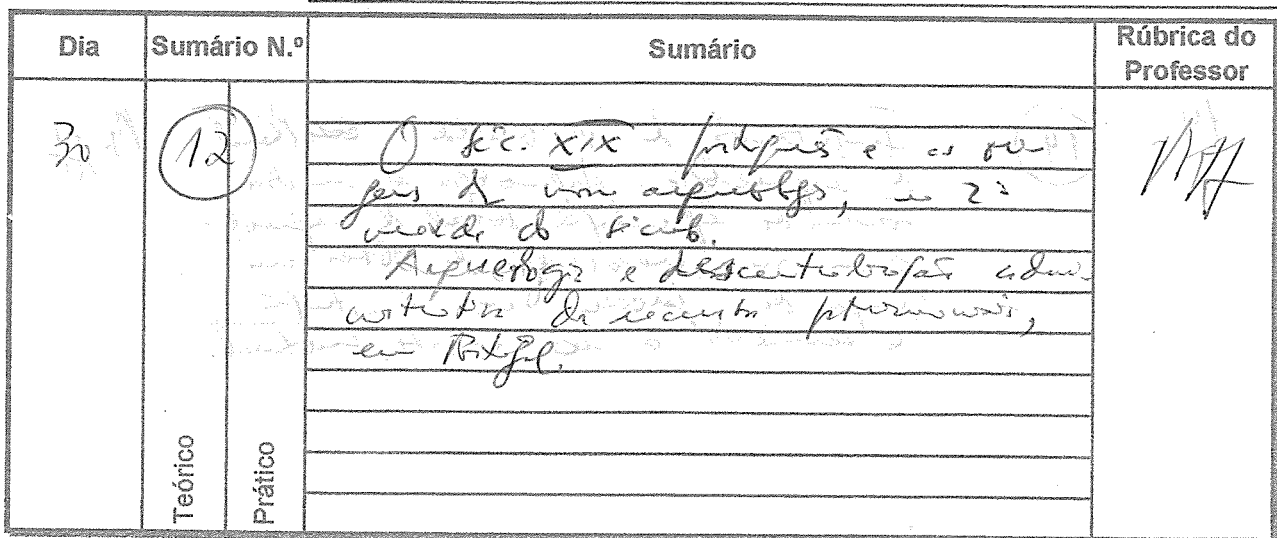 Dia
Sumário N.º
Sumário
Rúbrica do
Professor
30
12
O séc. XIX português e as ori
gens da arqueologia, na 2ª
metade do século.
Arqueologia e descentralização admi
nistrativa de recursos patrimoniais,
em Portugal.
Teórico
Prático